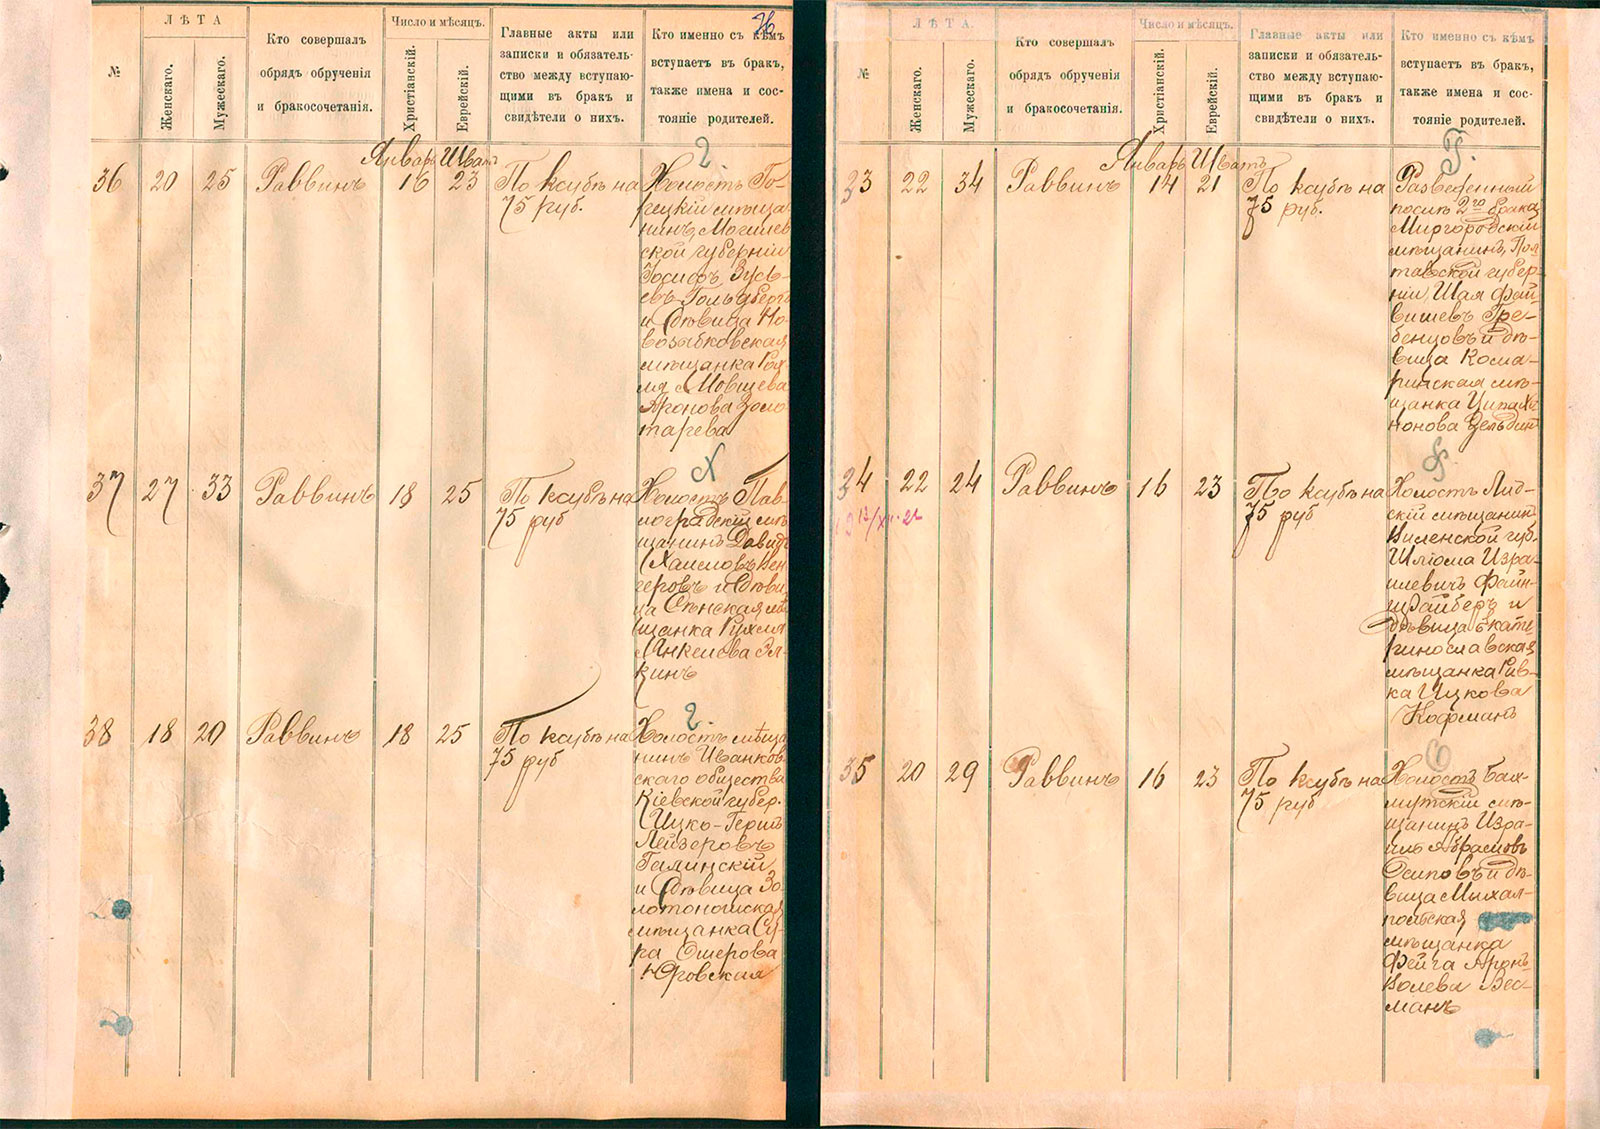 76
ЛѢТА
№
Женскаго.
Мужескаго.
Кто совершалъ
обрядъ обрученія
и бракосочетанія.
Число и мѣсяцъ.
Христіанскій.
Еврейскій.
Главные акты или
записки и обязатель-
ство между вступаю-
щими въ бракъ и
свидѣтели о нихъ.
Кто именно съ кѣмъ
вступаетъ въ бракъ,
также имена и сос-
тояніе родителей.
Январь Шватъ
2.
36 20 25 Раввинъ 16 23 По ксубѣ на
75 руб.
Холостъ Го-
рецкій мѣща-
нинъ, Могилев
ской губерніи
Іосифъ Зусь-
евъ Гольдбергъ
и дѣвица Но-
возыбковская
мѣщанка
Мовшева
Аронова Золо
тарева
37 27 33 Раввинъ 18 25 По ксубѣ на
75 руб
Холостъ Пав-
лоградскій мѣ
щанинъ Давидъ
Хаимовъ Вен
геровъ и дѣви
ца Сѣнская мѣ
щанка Рухля
Янкелева Эль-
кинъ
2.
38 18 20 Раввинъ 18 25 По ксубѣ на
75 руб
Холостъ мѣща
нинъ Иванков
скаго общества
Кіевской губер.
Ицко-Гершъ
Лейзеровъ
Галинскій
и дѣвица Зо-
лотоношская
мѣщанка Су-
ра Ошерова
Юровская
ЛѢТА.
№
Женскаго.
Мужескаго.
Кто совершалъ
обрядъ обрученія
и бракосочетанія.
Число и мѣсяцъ.
Христіанскій.
Еврейскій.
Главные акты или
записки и обязатель-
ство между вступаю-
щими въ бракъ и
свидѣтели о нихъ.
Кто именно съ кѣмъ
вступаетъ въ бракъ,
также имена и сос-
тояніе родителей.
Январь Шватъ
Г.
33 22 34 Раввинъ 14 21 По ксубѣ на
75 руб.
Разведенный
послѣ 2го брака
Миргородскій
мѣщанинъ, Пол
тавской губер-
ніи, Шая Фай-
вишевъ Гре-
бенцовъ и дѣ-
вица Кома-
ринская мѣ-
щанка Ципа Х
нонова Зельдин
Ф.
34 22 24 Раввинъ 16 23 По ксубѣ на
75 руб
Холостъ Лид-
скій мѣщанинъ
Виленской губ.
Шліома Изра-
илевичъ Файн-
шрайберъ и
дѣвица Екате-
ринославская
мѣщанка Рив-
ка Ицкова
Кофманъ
О
35 20 29 Раввинъ 16 23 По ксубѣ на
75 руб
Холостъ Бах-
мутскій мѣ-
щанинъ Изра-
иль Абрамовъ
Осиповъ и дѣ-
вица Михал-
польская
мѣщанка
Фейга Аронъ-
Волева Вес-
манъ